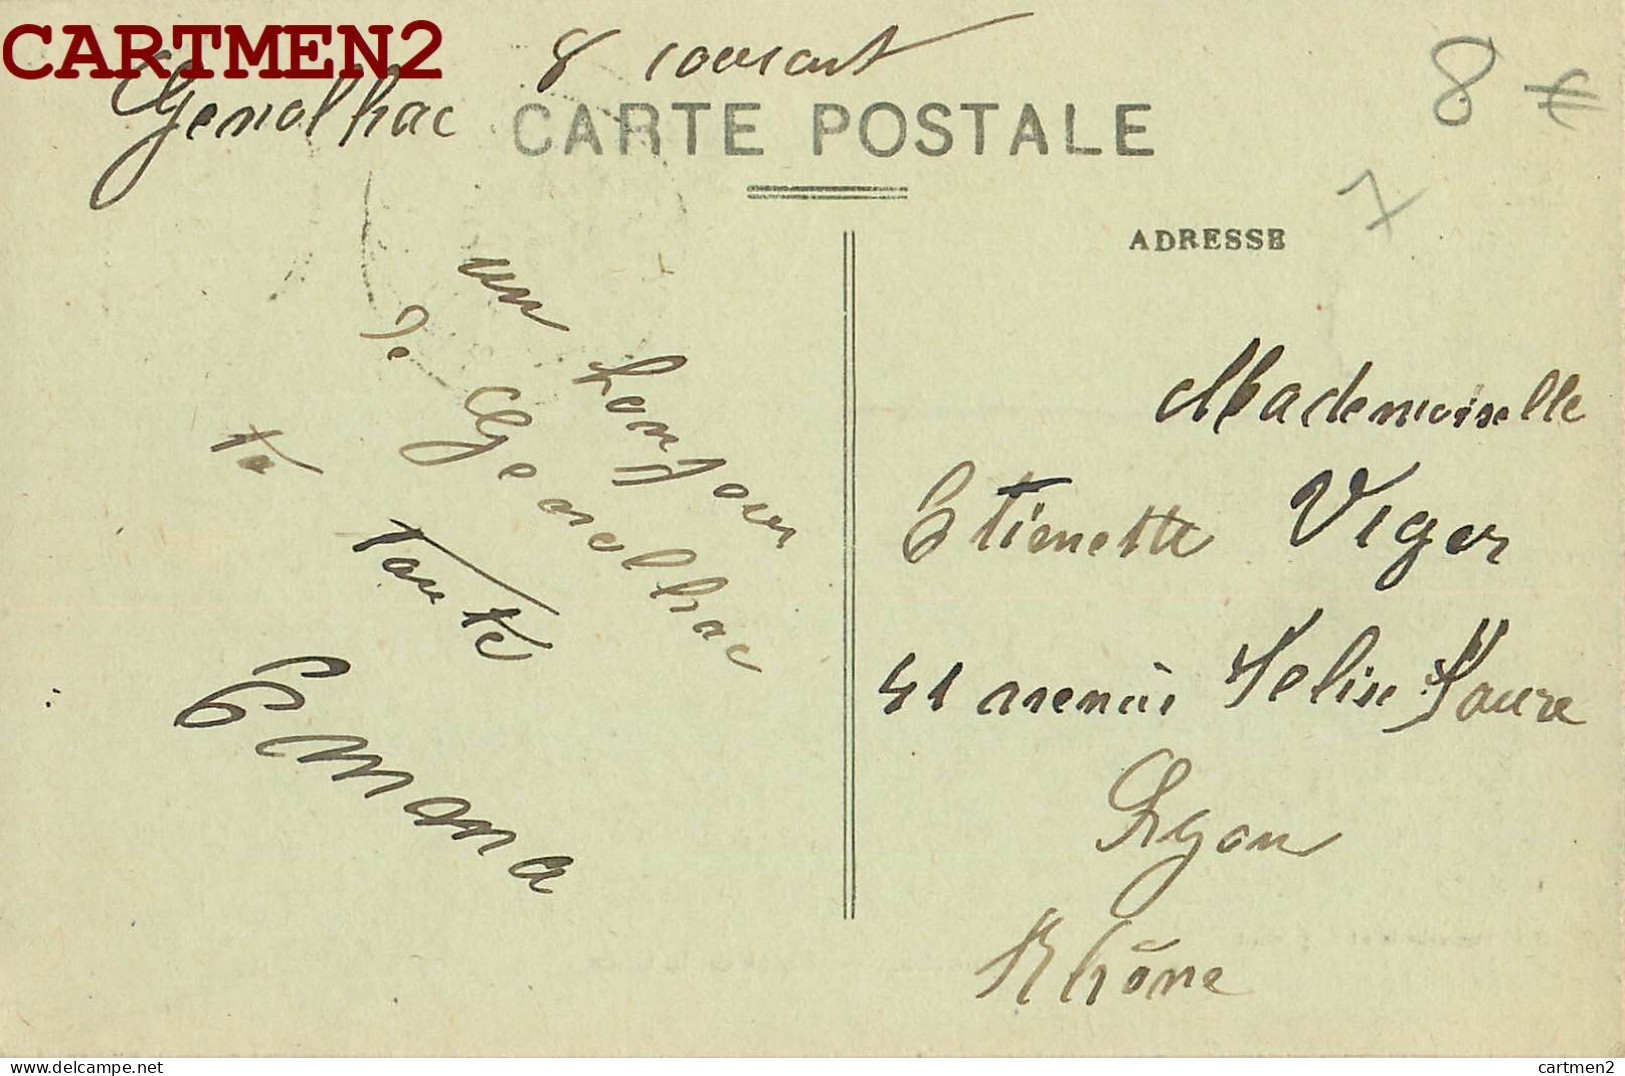 CARTMEN2
Genolhac 8 courant
CARTE POSTALE
8 €
7
ADRESSE
un bonjour
de Genolhac
ta tante
Emma
Mademoiselle
Etienette Viger
41 avenue Felix Faure
Lyon
Rhône
cartmen2